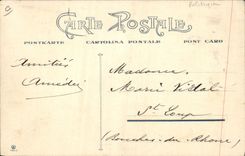 CARTE POSTALE
POSTKARTE CARTOLINA POSTALE POST CARD
Amitiés
Amédée
Madame
Marie Vidal
St Loup
(Bouches-du-Rhône)